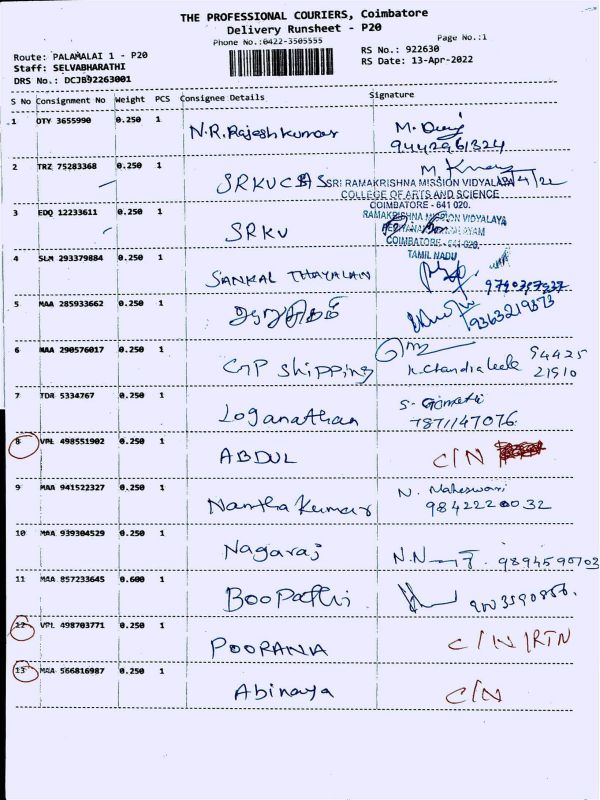 THE PROFESSIONAL COURIERS, Coimbatore
Delivery Runsheet - P20
Phone No.:0422-3505555
Page No.:1
Route: PALAMALAI 1 - P20
RS No.: 922630
Staff: SELVABHARATHI
RS Date: 13-Apr-2022
DRS No.: DCJB92263001
S No Consignment No Weight PCS Consignee Details Signature
1 OTY 3655990 0.250 1 N.R. Rajeshkumar M.
9442961324
2 TRZ 75283368 0.250 1 SRKVCAS
SRI RAMAKRISHNA MISSION VIDYALAYA
COLLEGE OF ARTS AND SCIENCE
COIMBATORE - 641 020.
3 EDQ 12233611 0.250 1 SRKV
RAMAKRISHNA MISSION VIDYALAYA
COIMBATORE - 641 020.
TAMIL NADU
4 SLM 293379884 0.250 1 SANKAL THAYALAN
5 MAA 285933662 0.250 1
9363219373
6 MAA 290576017 0.250 1 GP Shipping K. Chandraleela 94425
21910
7 TDR 5334767 0.250 1 Loganathan S. Gomathi
7871147076
8 VPL 498551902 0.250 1 ABDUL C/N
9 MAA 941522327 0.250 1 Nantha Kumar N. Maheswari
9842220032
10 MAA 939304529 0.250 1 Nagaraj N.N 9894590703
11 MAA 857233645 0.600 1 Boopathi
12 VPL 498703771 0.250 1 POORANA C/N/RTN
13 MAA 566816987 0.250 1 Abinaya C/N